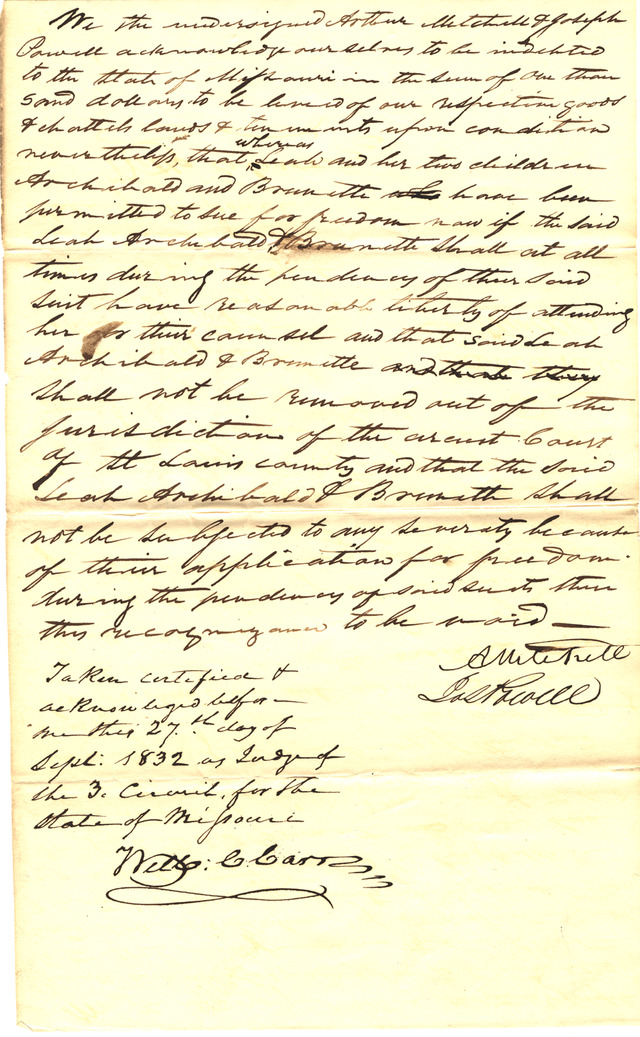 We the undersigned Arthur Mitchell & Joseph
Powell acknowledge ourselves to be indebted
to the State of Missouri in the sum of one thou
sand dollars to be levied of our respective goods
& chattels lands & tenements upon condition
whereas
nevertheless, that Leah and her two children
Archibald and Brunette who have been
permitted to sue for freedom now if the said
Leah Archibald & Brunette shall at all
times during the pendency of their said
suit have reasonable liberty of attending
her or their counsel and that said Leah
Archibald & Brunette and that they
shall not be removed out of the
jurisdiction of the circuit Court
of St Louis county and that the said
Leah Archibald & Brunette shall
not be subjected to any severity because
of their application for freedom
during the pendency of said suits then
this recognizance to be void —
A Mitchell
Jos Powell
Taken certified &
acknowledged before
me this 27.th day of
Sept: 1832 as Judge of
the 3. Circuit, for the
State of Missouri
Will: C. Carr